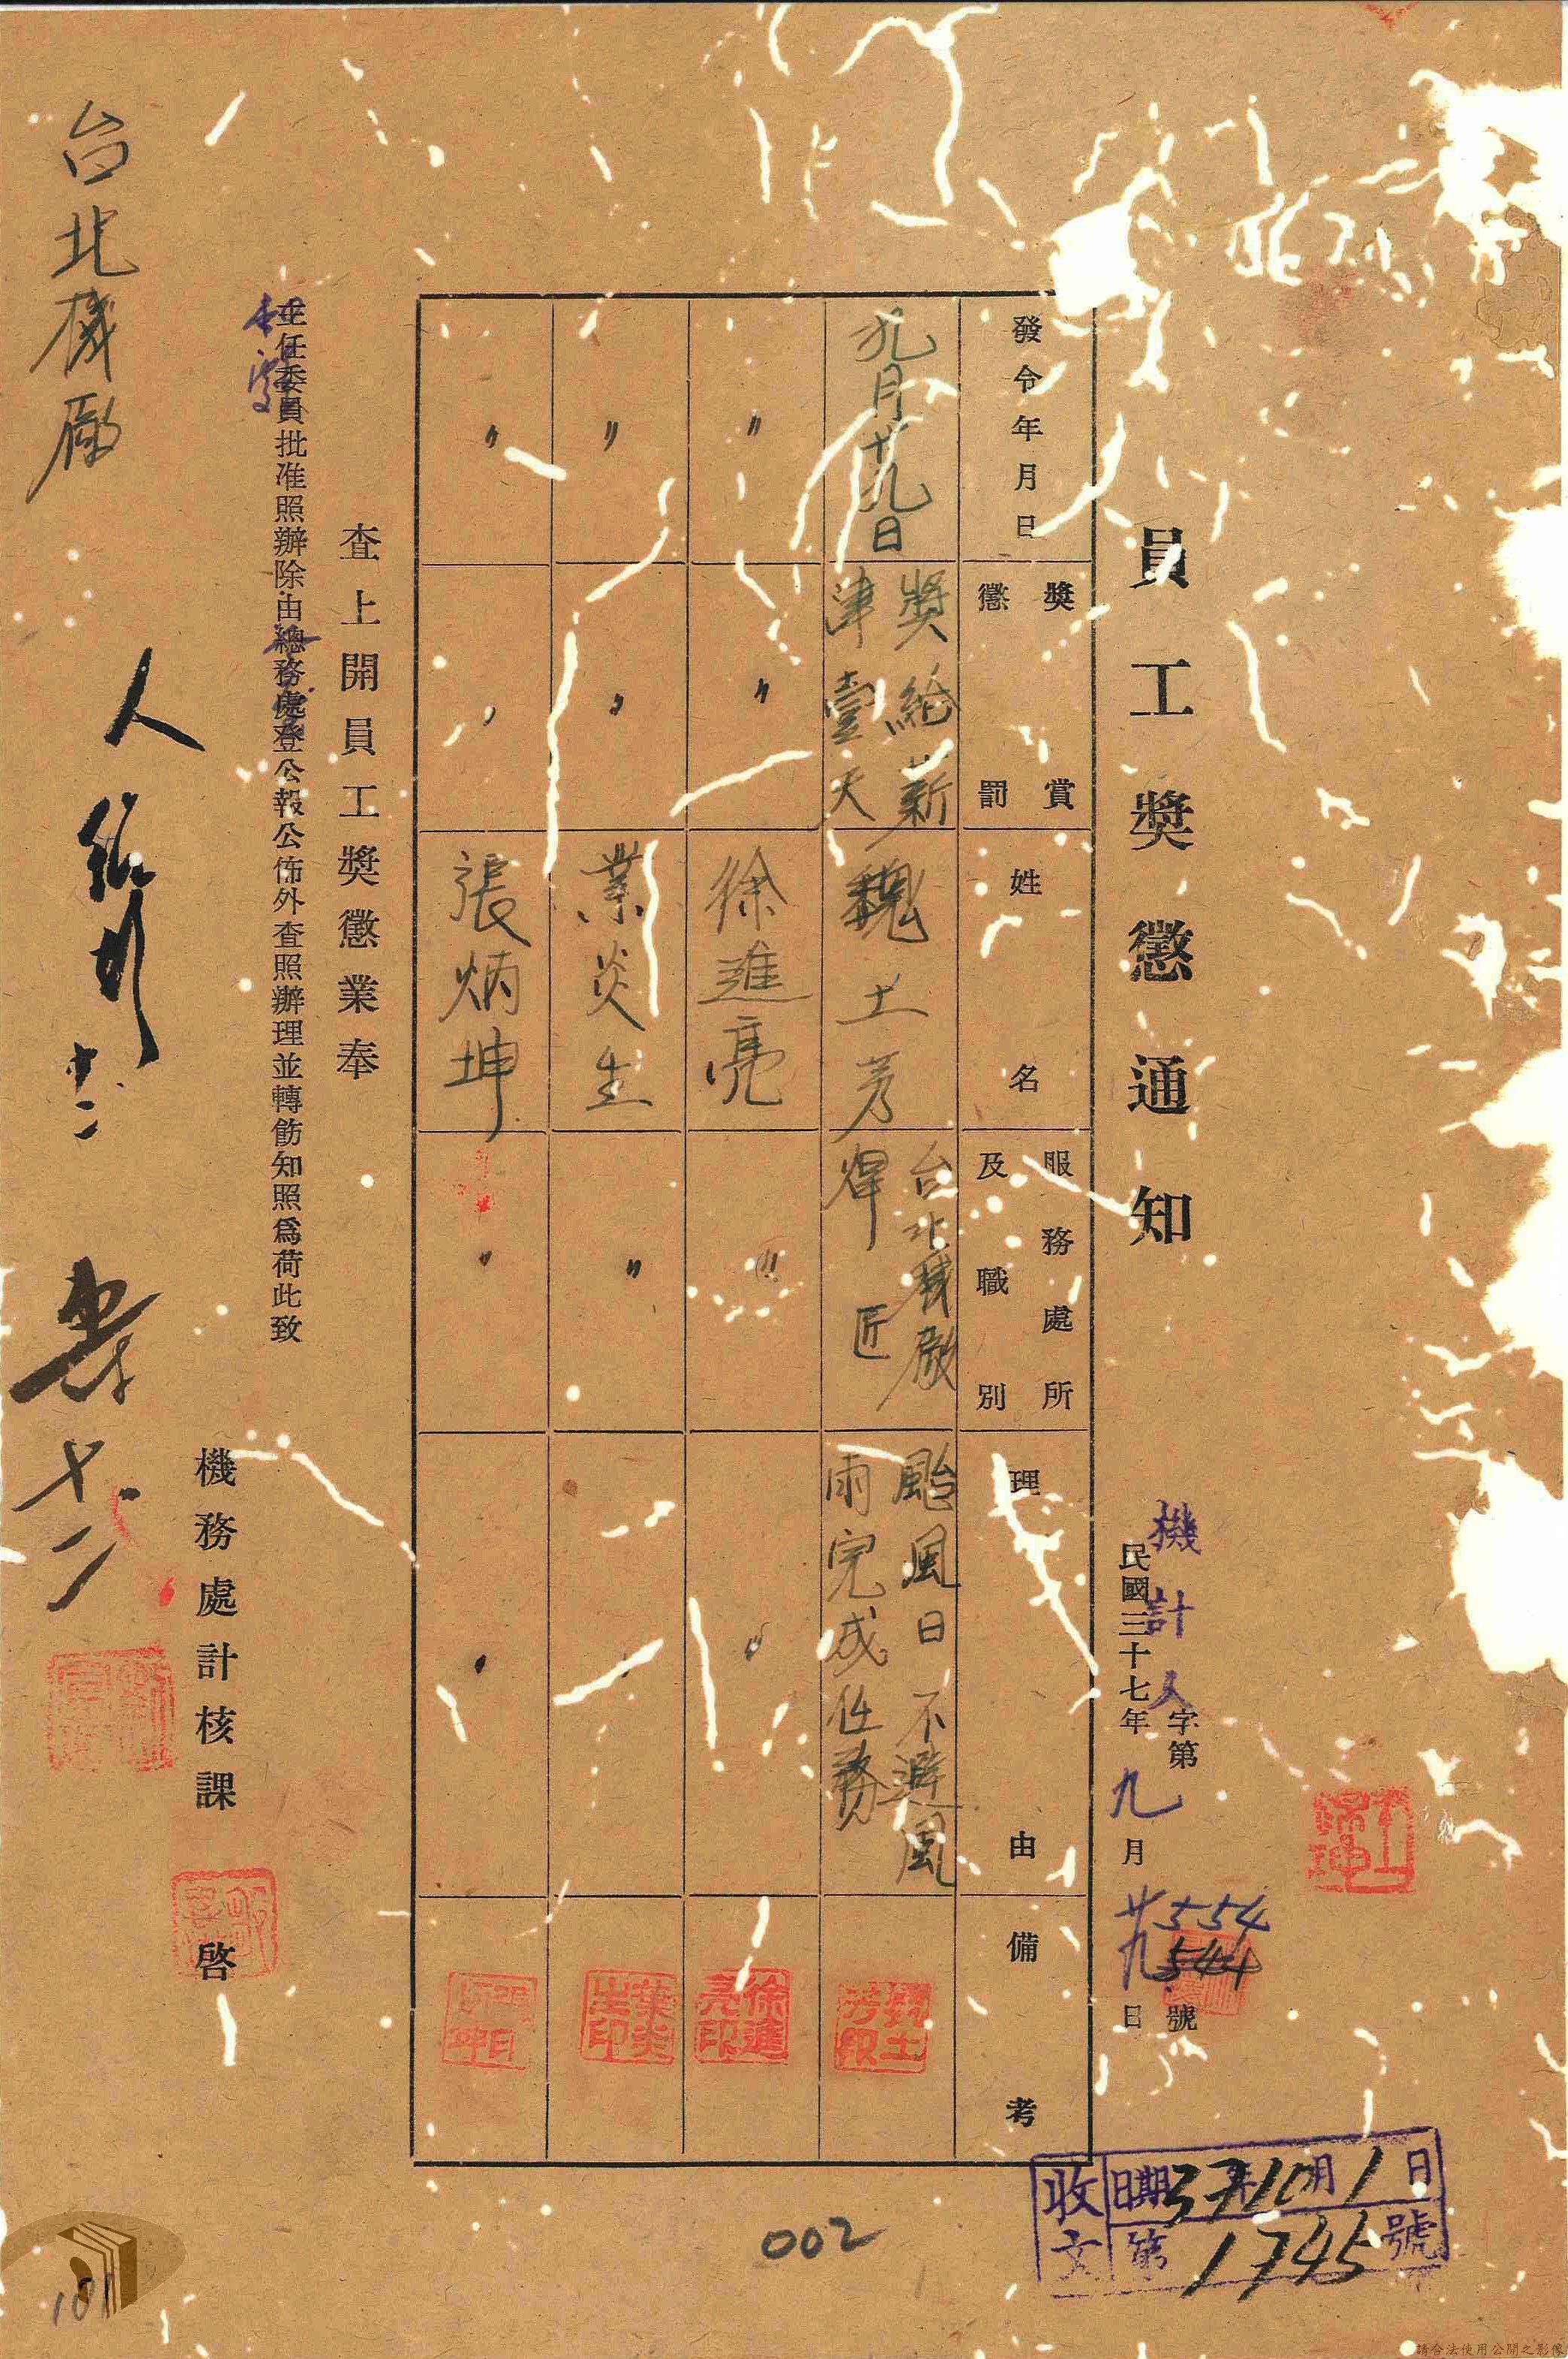 員工獎懲通知
機計人字第554號
民國三十七年九月廿九日
發令年月日
獎賞
懲罰
姓名
服務處所
及職別
理由
備考
九月十九日
獎給薪
津壹天
魏土芳
台北機廠
焊匠
颱風日不避風
雨完成任務
〃
〃
徐進亮
〃
〃
徐進亮印
〃
〃
葉炎生
〃
葉炎生印
〃
〃
張炳坤
〃
〃
查上開員工獎懲業奉
主任委員批准照辦除由總務處登公報公佈外查照辦理並轉飭知照爲荷此致
機務處計核課啓
台北機廠
收文
日期37年10月1日
第1745號
002
101
請合法使用公開之影像